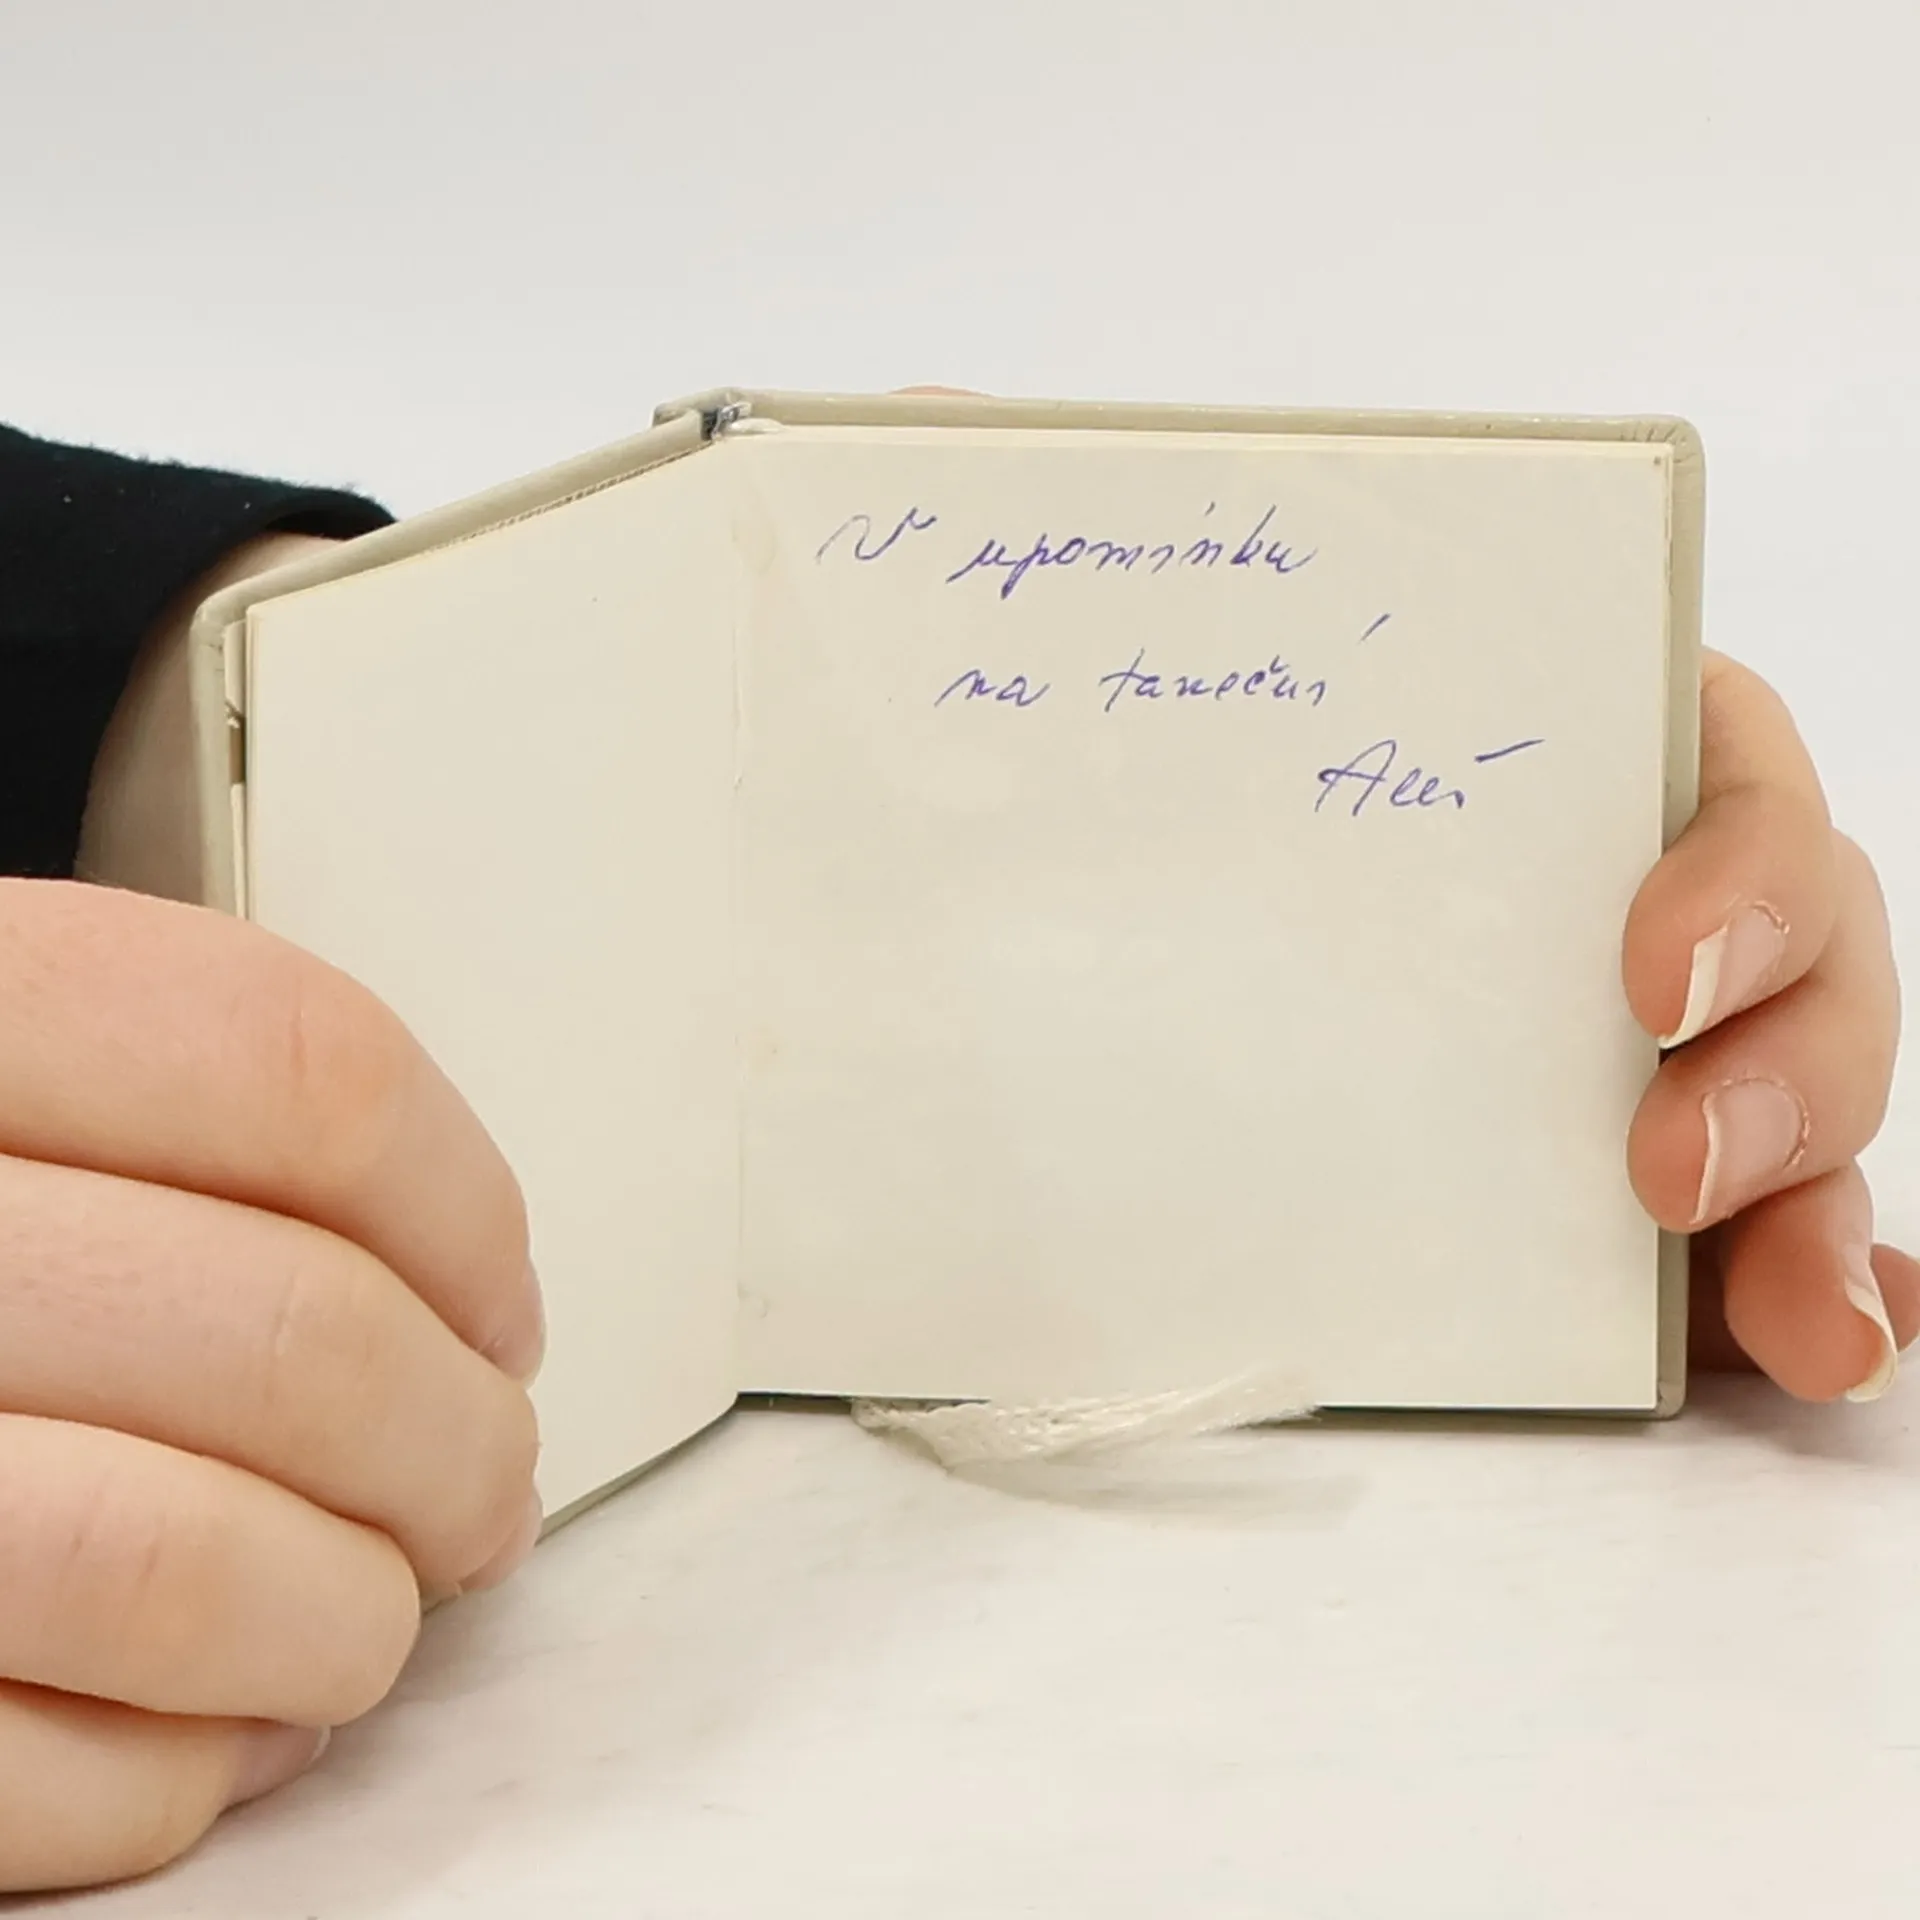 V upomínku
na taneční
Aleš